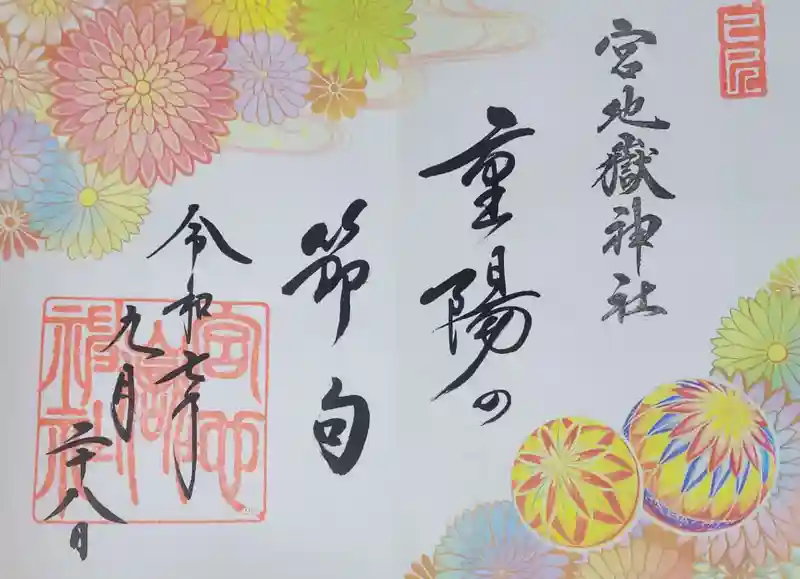 宮地嶽神社
重陽の
節句
令和七年
九月
二十八日
宮地嶽神社